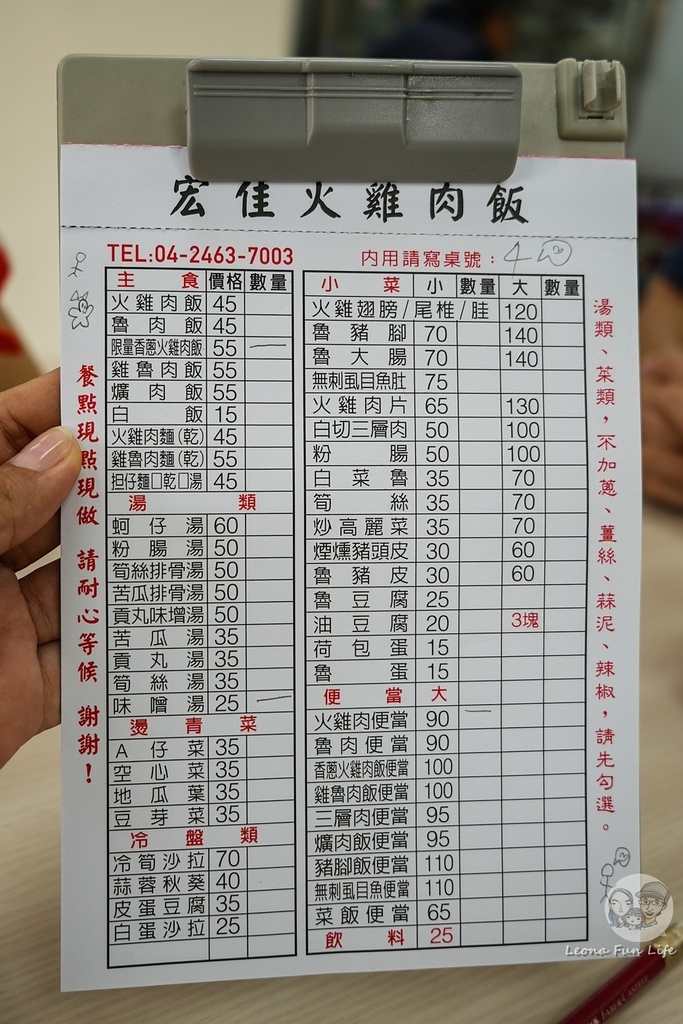 宏佳火雞肉飯
TEL:04-2463-7003
內用請寫桌號：4
主食 價格 數量
火雞肉飯 45
魯肉飯 45
限量香蔥火雞肉飯 55 一
雞魯肉飯 55
爌肉飯 55
白飯 15
火雞肉麵(乾) 45
雞魯肉麵(乾) 55
担仔麵□乾□湯 45
湯類
蚵仔湯 60
粉腸湯 50
筍絲排骨湯 50
苦瓜排骨湯 50
貢丸味增湯 50
苦瓜湯 35
貢丸湯 35
筍絲湯 35
味噌湯 25 一
燙青菜
A仔菜 35
空心菜 35
地瓜葉 35
豆芽菜 35
冷盤類
冷筍沙拉 70
蒜蓉秋葵 40
皮蛋豆腐 35
白蛋沙拉 25
小菜 小 數量 大 數量
火雞翅膀/尾椎/胿 120
魯豬腳 70 140
魯大腸 70 140
無刺虱目魚肚 75
火雞肉片 65 130
白切三層肉 50 100
粉腸 50 100
白菜魯 35 70
筍絲 35 70
炒高麗菜 35 70
煙燻豬頭皮 30 60
魯豬皮 30 60
魯豆腐 25
油豆腐 20 3塊
荷包蛋 15
魯蛋 15
便當 大
火雞肉便當 90 一
魯肉便當 90
香蔥火雞肉飯便當 100
雞魯肉飯便當 100
三層肉便當 95
爌肉飯便當 95
豬腳飯便當 110
無刺虱目魚便當 110
菜飯便當 65
飲料 25
餐點現點現做 請耐心等候 謝謝！
湯類、菜類，不加蔥、薑絲、蒜泥、辣椒，請先勾選。
Leona Fun Life
FABER-CASTELL